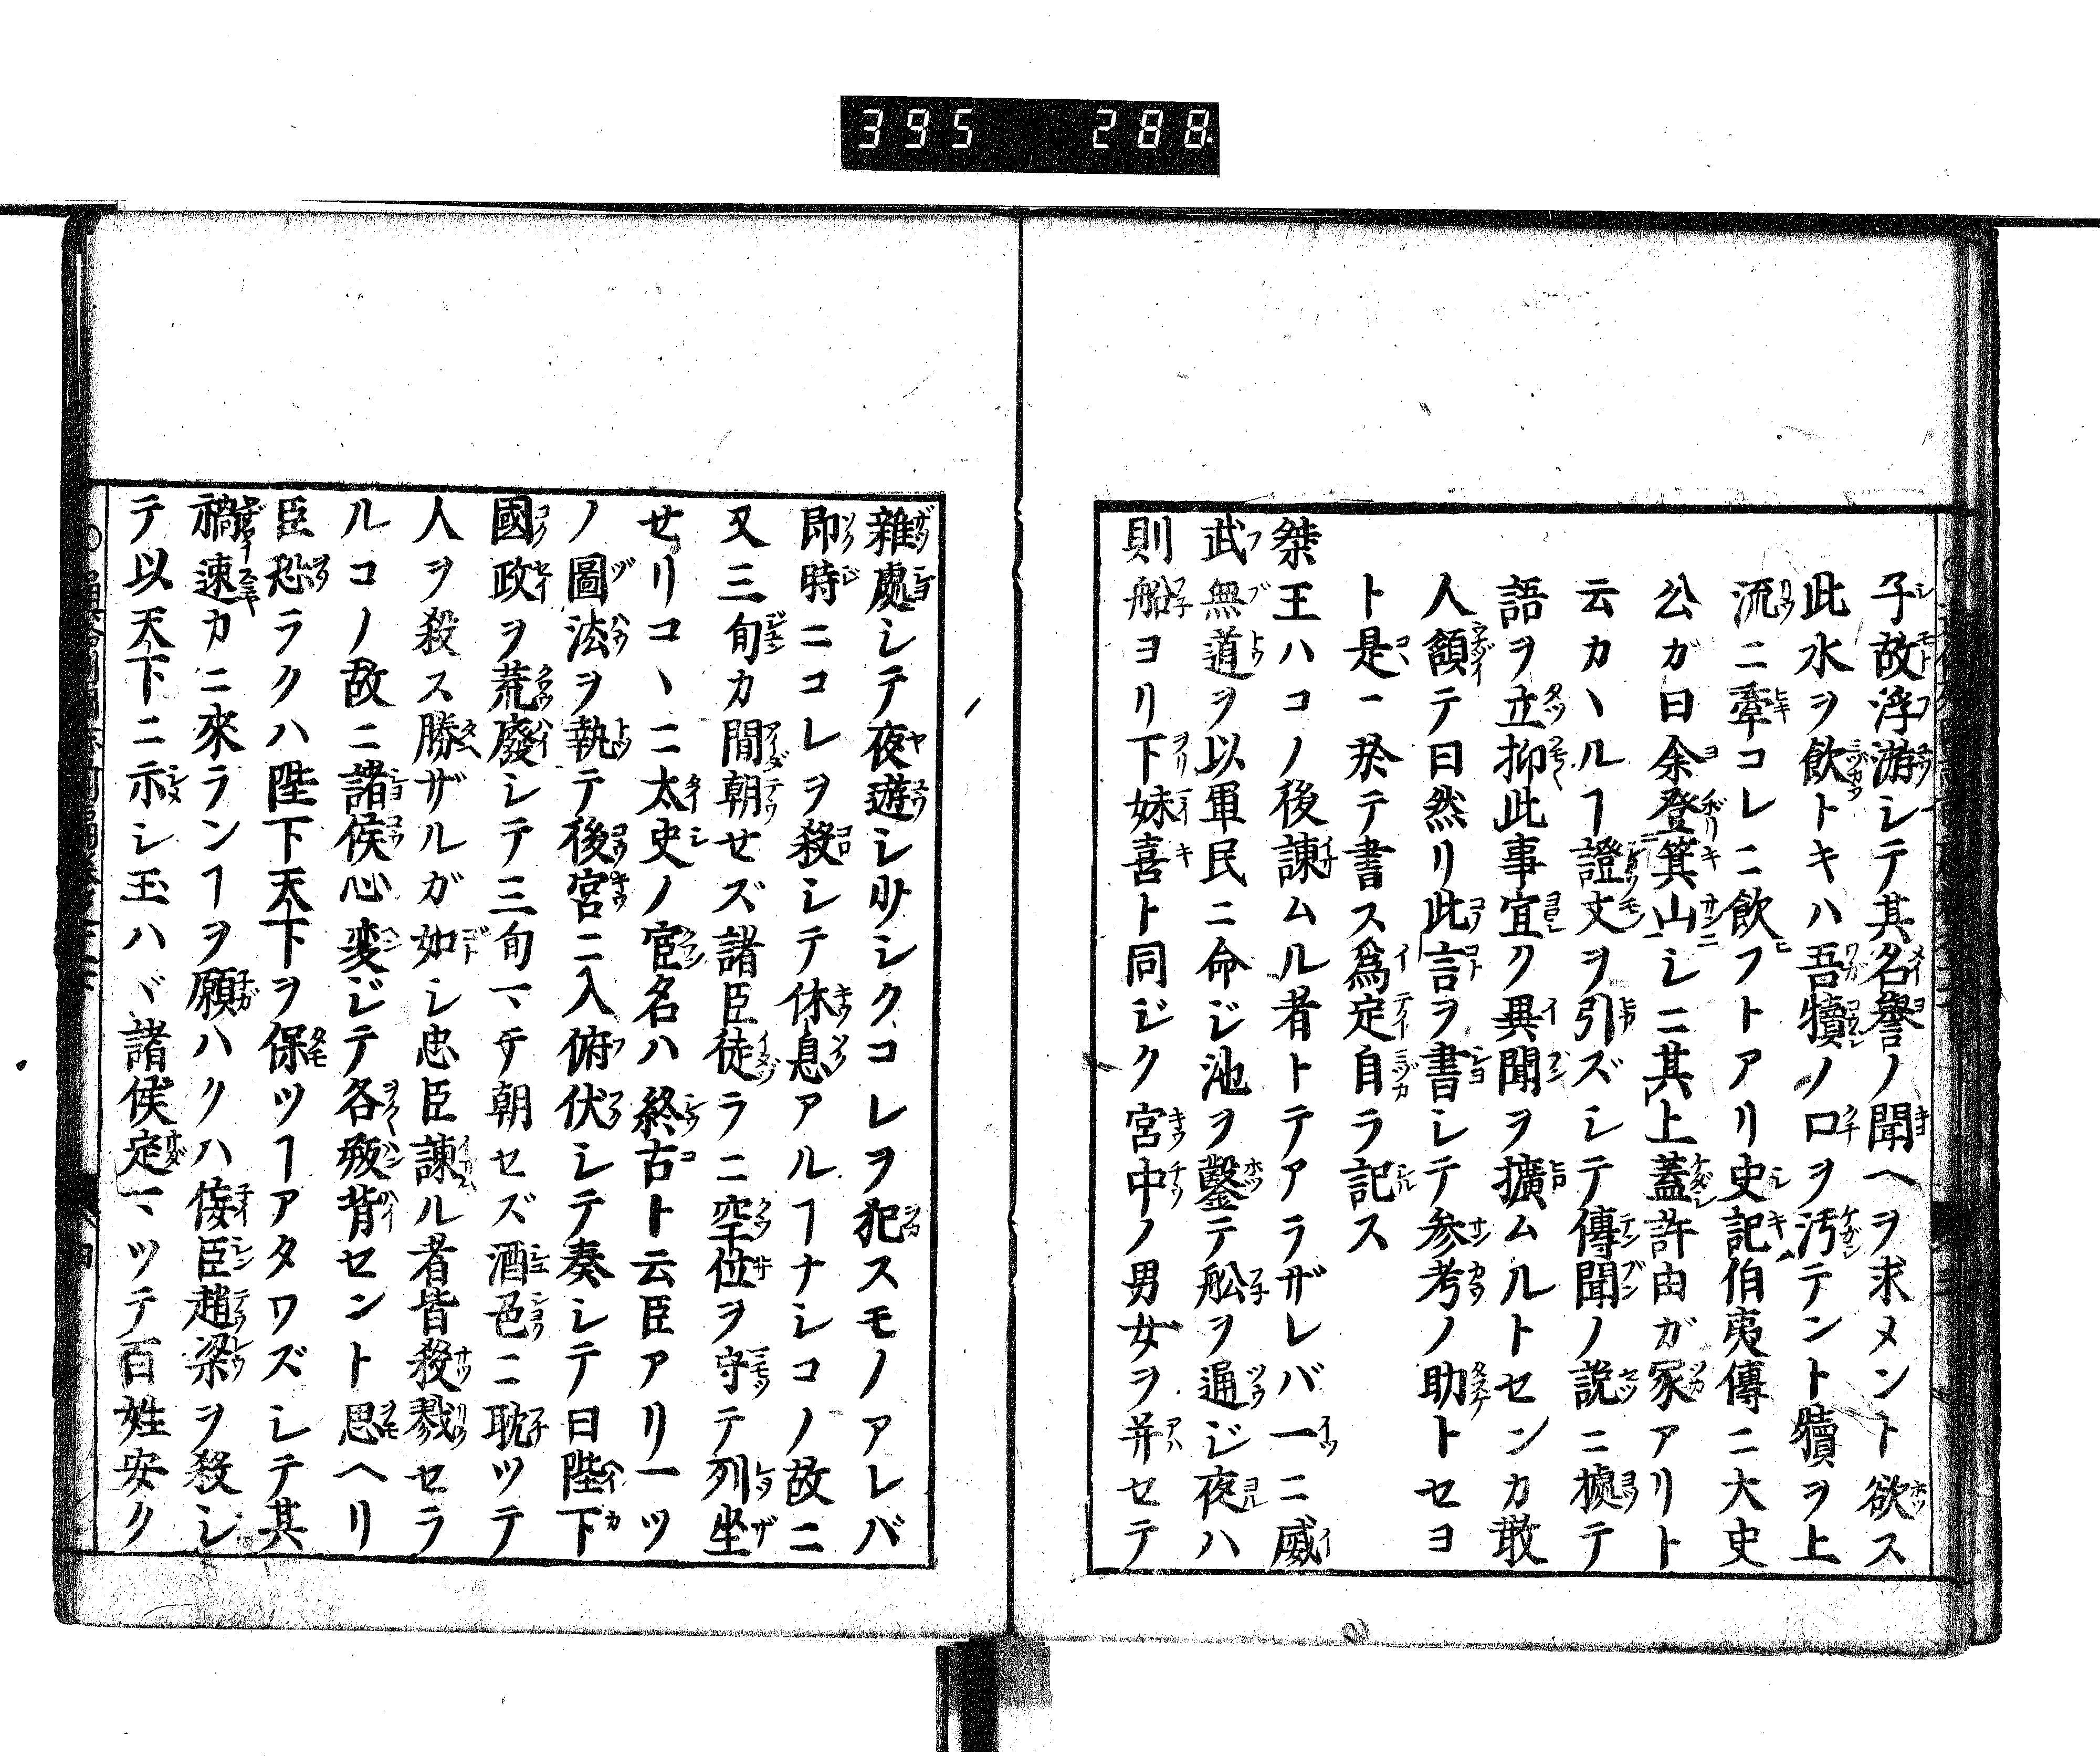 395 288
子故浮游シテ其名譽ノ聞ヘヲ求メント欲ス
此水ヲ飲トキハ吾犢ノ口ヲ汚テント犢ヲ上
流ニ牽コレニ飲フトアリ史記伯夷傳ニ大史
公ガ曰余登箕山シニ其上蓋許由ガ冢アリト
云カヽルヿ證丈ヲ引ズシテ傳聞ノ説ニ據テ
語ヲ立抑此事宜ク異聞ヲ擴ムルトセンカ敢
人頷テ曰然リ此言ヲ書シテ参考ノ助トセヨ
ト是ニ於テ書ス爲定自ラ記ス
桀王ハコノ後諫ムル者トテアラザレバ一ニ威
武無道ヲ以軍民ニ命ジ池ヲ鑿テ舩ヲ通ジ夜ハ
則船ヨリ下妹喜ト同ジク宮中ノ男女ヲ并セテ
雜處シテ夜遊シ少シクコレヲ犯スモノアレバ
即時ニコレヲ殺シテ休息アルヿナシコノ故ニ
又三旬カ間朝セズ諸臣徒ラニ空位ヲ守テ列坐
せリコヽニ太史ノ官名ハ終古ト云臣アリ一ツ
ノ圖法ヲ執テ後宮ニ入俯伏シテ奏シテ曰陛下
國政ヲ荒廢シテ三旬マデ朝セズ酒色ニ耽ツテ
人ヲ殺ス勝ザルガ如シ忠臣諫ル者皆殺戮セラ
ルコノ故ニ諸侯心変ジテ各叛背セント思ヘリ
臣恐ラクハ陛下天下ヲ保ツヿアタワズシテ其
禍速カニ來ランヿヲ願ハクハ侫臣趙梁ヲ殺シ
テ以天下ニ示シ玉ハヾ諸侯定マツテ百姓安ク